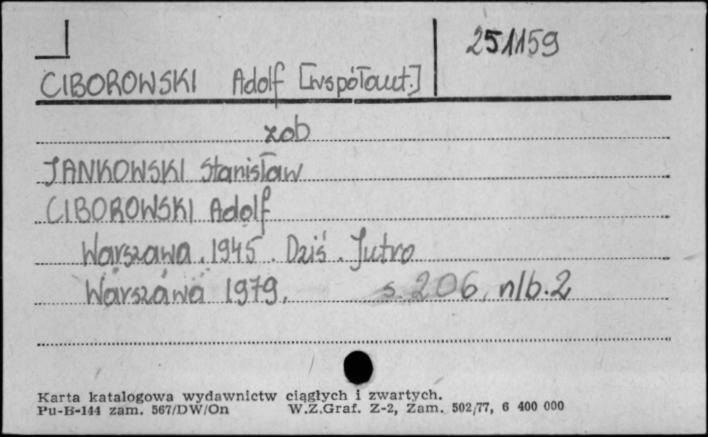 251159
CIBOROWSKI Adolf [współaut.]
zob
JANKOWSKI Stanisław
CIBOROWSKI Adolf
Warszawa. 1945. Dziś. Jutro
Warszawa 1979. s. 206, nlb. 2
Karta katalogowa wydawnictw ciągłych i zwartych.
Pu-B-144 zam. 567/DW/On W.Z.Graf. Z-2, Zam. 502/77, 6 400 000